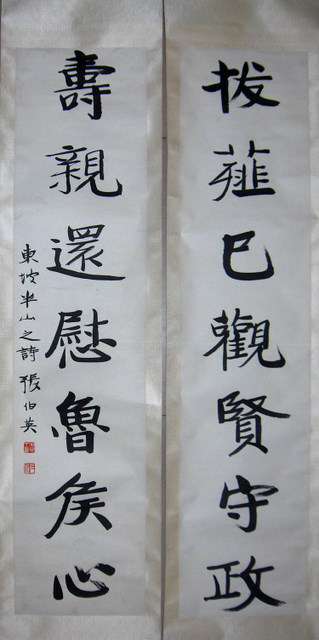 拔薤已觀賢守政
壽親還慰魯侯心
東坡半山之詩 張伯英